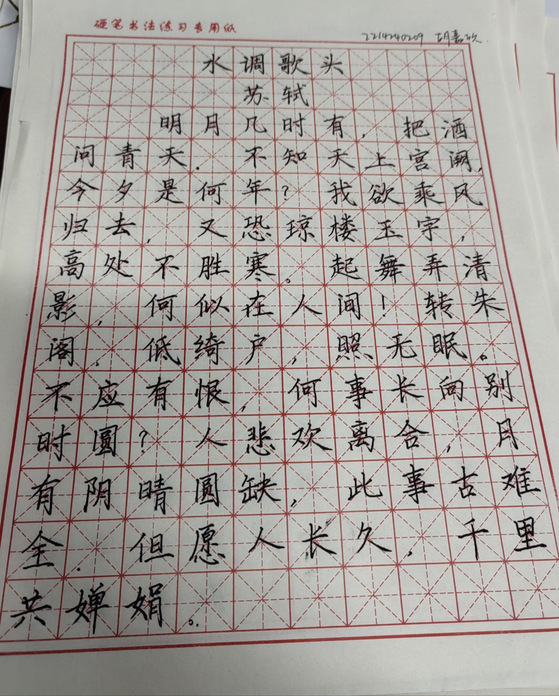 硬笔书法练习专用纸
2214240209 胡嘉欣.
水调歌头
苏轼
明月几时有，把酒
问青天.不知天上宫阙,
今夕是何年？我欲乘风
归去，又恐琼楼玉宇，
高处不胜寒。起舞弄清
影，何似在人间！转朱
阁，低绮户，照无眠。
不应有恨，何事长向别
时圆？人悲欢离合，月
有阴晴圆缺，此事古难
全.但愿人长久，千里
共婵娟。